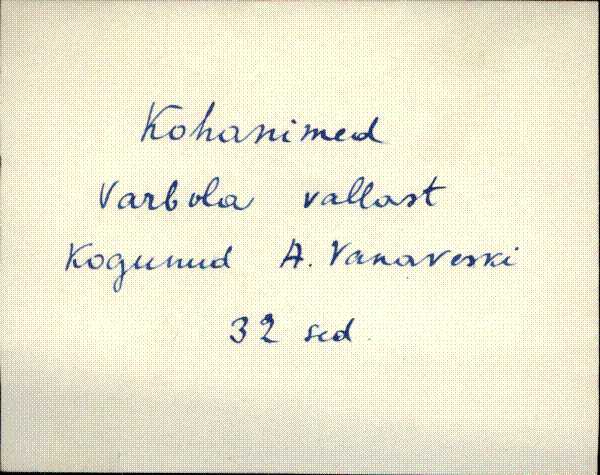 Kohanimed
Varbola vallast
Kogunud A. Vanaveski
32 sed.